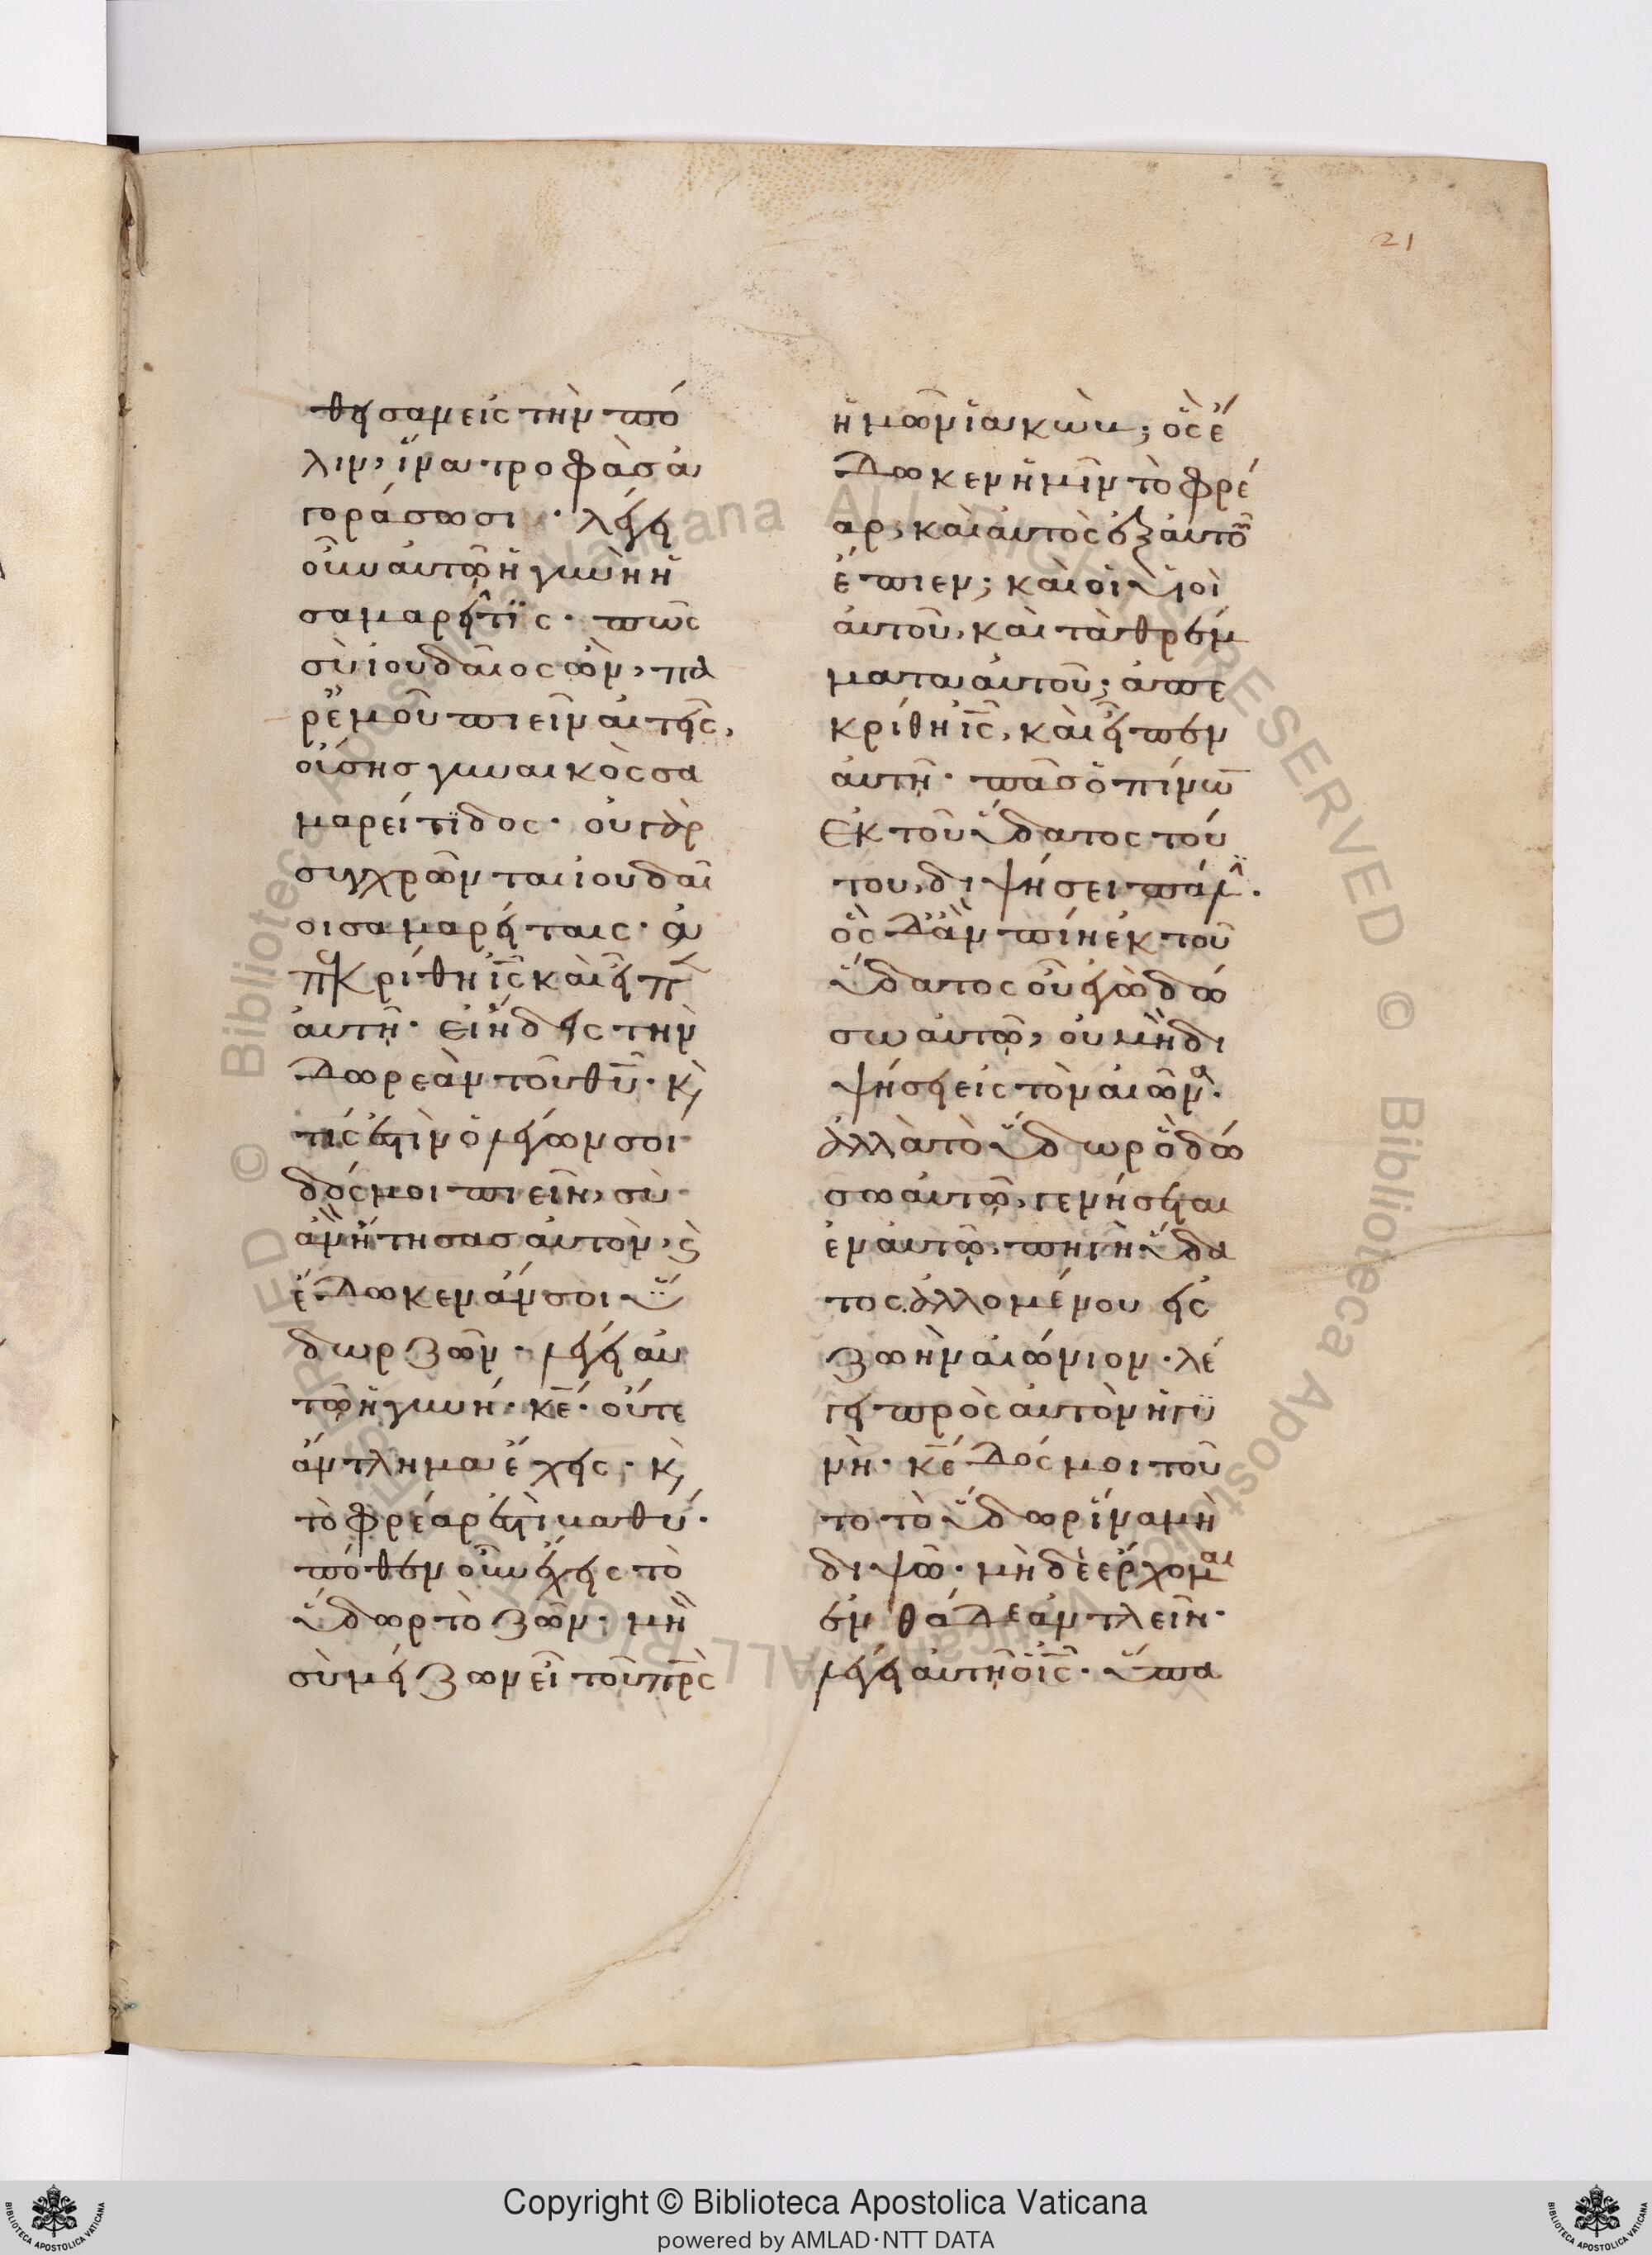 21
θεισαν εἰς τὴν πό
λιν, ἵνα τροφὰς ἀ
γοράσωσι · λέγει
οὖν αὐτῷ ἡ γυνὴ ἡ
σαμαρεῖτϊς · πῶς
σὺ ἰουδαῖος ὢν, πα
ρ᾽ ἐμοῦ πιεῖν αἰτεῖς,
οὔσης γυναικὸς σα
μαρείτϊδος · οὐ γὰρ
συγχρῶνται ἰουδαῖ
οι σαμαρείταις · ἀ
πεκρίθη ἰς̄ καὶ εἶπεν
αὐτῇ · εἰ ᾔδεις τὴν
δωρεὰν τοῦ θῡ · κὶ
τίς ἐστὶν ὁ λέγων σοι
δός μοι πιεῖν, σὺ
ἂν ᾔτησας αὐτὸν, κὶ
ἔδωκεν ἄν σοι ὕ
δωρ ζῶν · λέγει αὐ
τῷ ἡ γυνή · κ̄ε · οὔτε
ἄντλημα ἔχεις · κὶ
τὸ φρέαρ ἐστὶ βαθύ ·
πόθεν οὖν ἔχεις τὸ
ὕδωρ τὸ ζῶν · μὴ
σὺ μείζων εἶ τοῦ πρ̄ς
ἡμῶν ἰακώβ; ὃς ἔ
δωκεν ἡμῖν τὸ φρέ
αρ, καὶ αὐτὸς ἐξ αὐτοῦ
ἔπιεν; καὶ οἱ υἱοὶ
αὐτοῦ, καὶ τὰ θρέμ
ματα αὐτοῦ; ἀπε
κρίθη ἰς̄, καὶ εἶπεν
αὐτῇ · πᾶς ὁ πίνων
ἐκ τοῦ ὕδατος τού
του, διψήσει πάλιν ·
ὃς δ᾽ ἂν πίῃ ἐκ τοῦ
ὕδατος οὗ ἐγὼ δώ
σω αὐτῷ, οὐ μὴ δι
ψήσει εἰς τὸν αἰῶνα ·
ἀλλὰ τὸ ὕδωρ ὃ δώ
σω αὐτῷ, γενήσεται
ἐν αὐτῷ, πηγὴ ὕδα
τος ἁλλομένου εἰς
ζωὴν αἰώνιον · λέ
γει πρὸς αὐτὸν ἡ γϋ
νὴ · κ̄ε δός μοι τοῦ
το τὸ ὕδωρ ἵνα μὴ
διψῶ · μὴ δὲ ἔρχομαι
ἐνθάδε ἀντλεῖν ·
λέγει αὐτῇ ὁ ἰς̄ · ὕπα
Copyright © Biblioteca Apostolica Vaticana
powered by AMLAD·NTT DATA